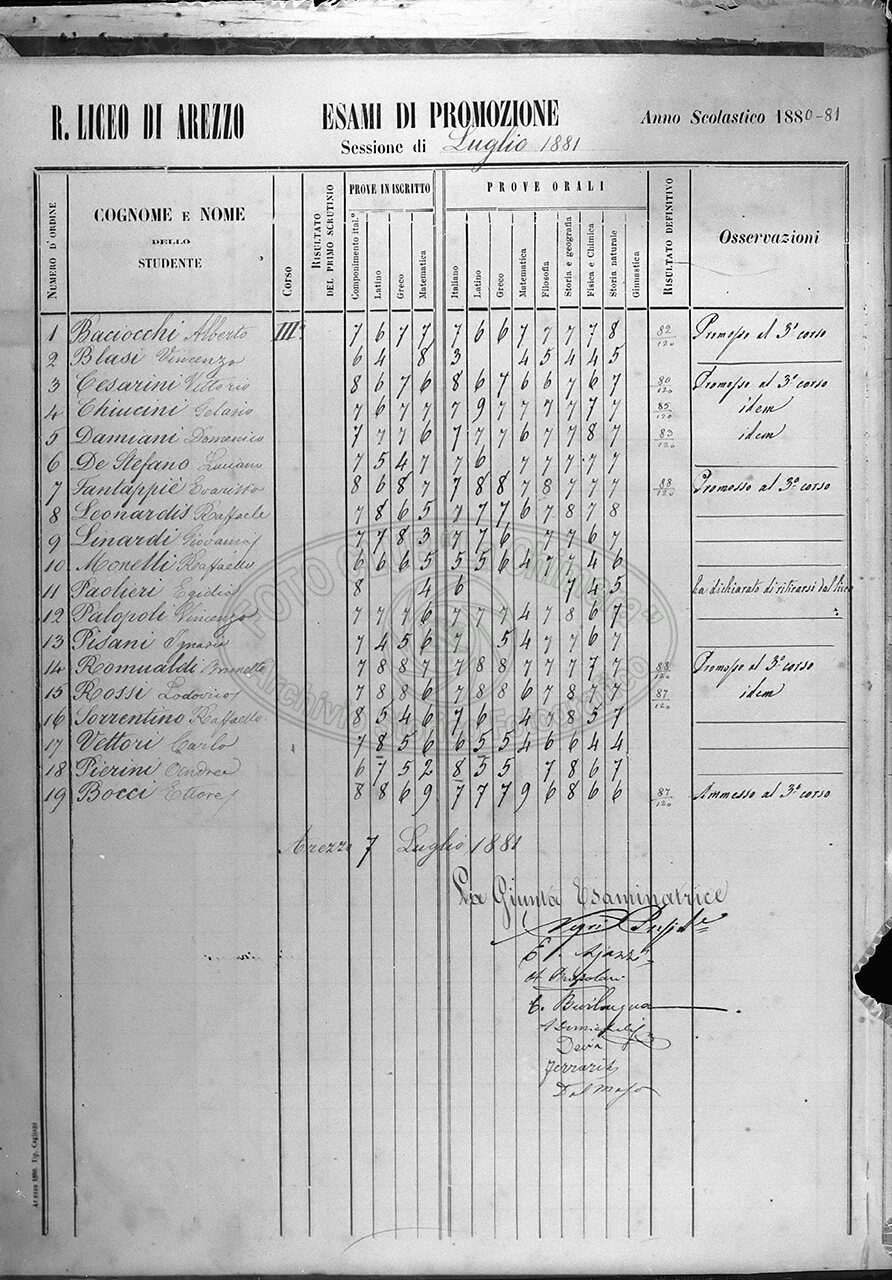 R. LICEO DI AREZZO ESAMI DI PROMOZIONE Anno Scolastico 1880-81
Sessione di Luglio 1881
NUMERO D'ORDINE COGNOME E NOME DELLO STUDENTE Corso RISULTATO DEL PRIMO SCRUTINIO PROVE IN ISCRITTO PROVE ORALI RISULTATO DEFINITIVO Osservazioni
Componimento ital.º Latino Greco Matematica Italiano Latino Greco Matematica Filosofia Storia e geografia Fisica e Chimica Storia naturale Ginnastica
1 Baciocchi Alberto III 7 6 7 7 7 6 6 7 7 7 7 8 82/120 Promosso al 3º corso
2 Blasi Vincenzo 6 4 8 3 4 5 4 4 5
3 Cesarini Vittorio 8 6 7 6 8 6 7 6 6 7 6 7 80/120 Promosso al 3º corso
4 Chiucini Gelasio 7 6 7 7 7 9 7 7 7 7 7 7 85/120 idem
5 Damiani Domenico 7 7 7 6 7 7 7 6 7 7 8 7 83/120 idem
6 De Stefano Luciano 7 5 4 7 7 6 7 7 7 7 7
7 Fantappiè Evaristo 8 6 8 7 7 8 8 7 8 7 7 7 88/120 Promosso al 3º corso
8 Leonardis Raffaele 7 8 6 5 7 7 7 6 7 8 7 8
9 Linardi Giovanni 7 7 8 3 7 7 6 7 7 6 7
10 Monelli Raffaello 6 6 6 5 5 5 6 4 7 7 4 6
11 Paolieri Egidio 8 4 6 7 4 5 ha dichiarato di ritirarsi dal liceo
12 Palopoli Vincenzo 7 7 7 6 7 7 7 4 7 8 6 7
13 Pisani Ignazio 7 4 5 6 7 5 4 7 7 6 7
14 Romualdi Brunetto 7 8 8 7 7 8 8 7 7 7 7 7 88/120 Promosso al 3º
15 Rossi Lodovico 7 8 8 6 7 8 8 6 7 8 7 7 87/120 idem
16 Sorrentino Raffaello 8 5 4 6 7 6 4 7 8 5 7
17 Vettori Carlo 7 8 5 6 6 5 5 4 6 6 4 4
18 Pierini Andrea 6 7 5 2 8 5 5 7 8 6 7
19 Bocci Ettore 8 8 6 9 7 7 7 9 6 8 6 6 87/120 Ammesso al 3º corso
Arezzo 7 Luglio 1881
La Giunta Esaminatrice
Devia
Ferrari
Dal Maso
Arezzo 1880 Tip. Cagliani